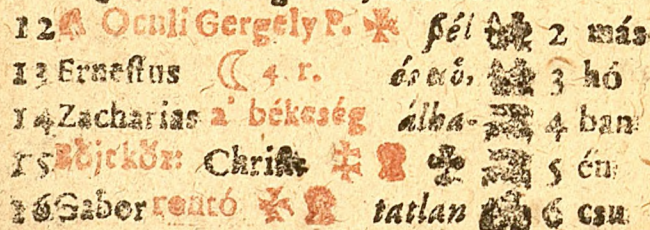 12 A Oculi Gergely P. ✠ ſzél 2 más
13 Erneſtus ☾ 4 r. és eső, 3 hó
14 Zacharias a' békeség álha- 4 ban
15 Böjtköz: Chriſt. ✠ 5 én
16 Gabor rontó ✠ tatlan 6 csu